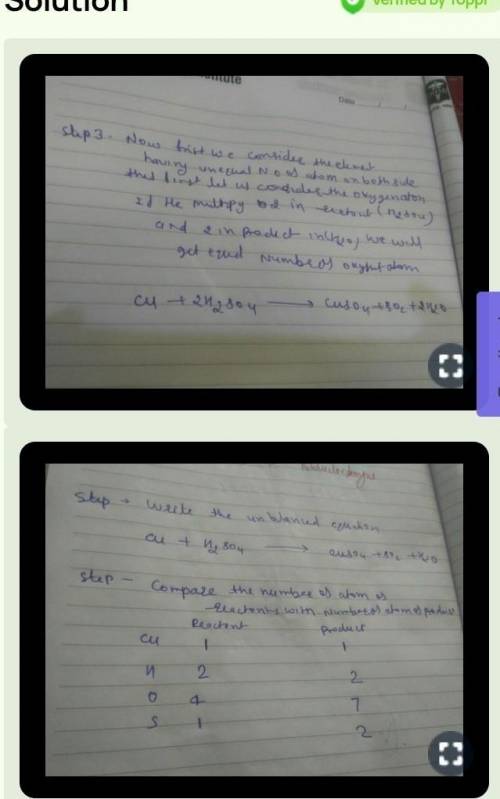 Solution
Verified by Toppr
Date
Step 3 - Now frist we consider the elment
having unequal No of atom on both side
that first let us consider the oxygen atom
If He multipy 2 in reactant (H2SO4)
and 2 in Product in (H2O) we will
get equal Number of oxygen atom
Cu + 2H2SO4 → CuSO4 + SO2 + 2H2O
Step → Write the unblanced equation
Cu + H2SO4 → CuSO4 + SO2 + H2O
Step - Compare the number of atom of
reactants with number of atom of product
Reactant Product
Cu 1 1
H 2 2
O 4 7
S 1 2